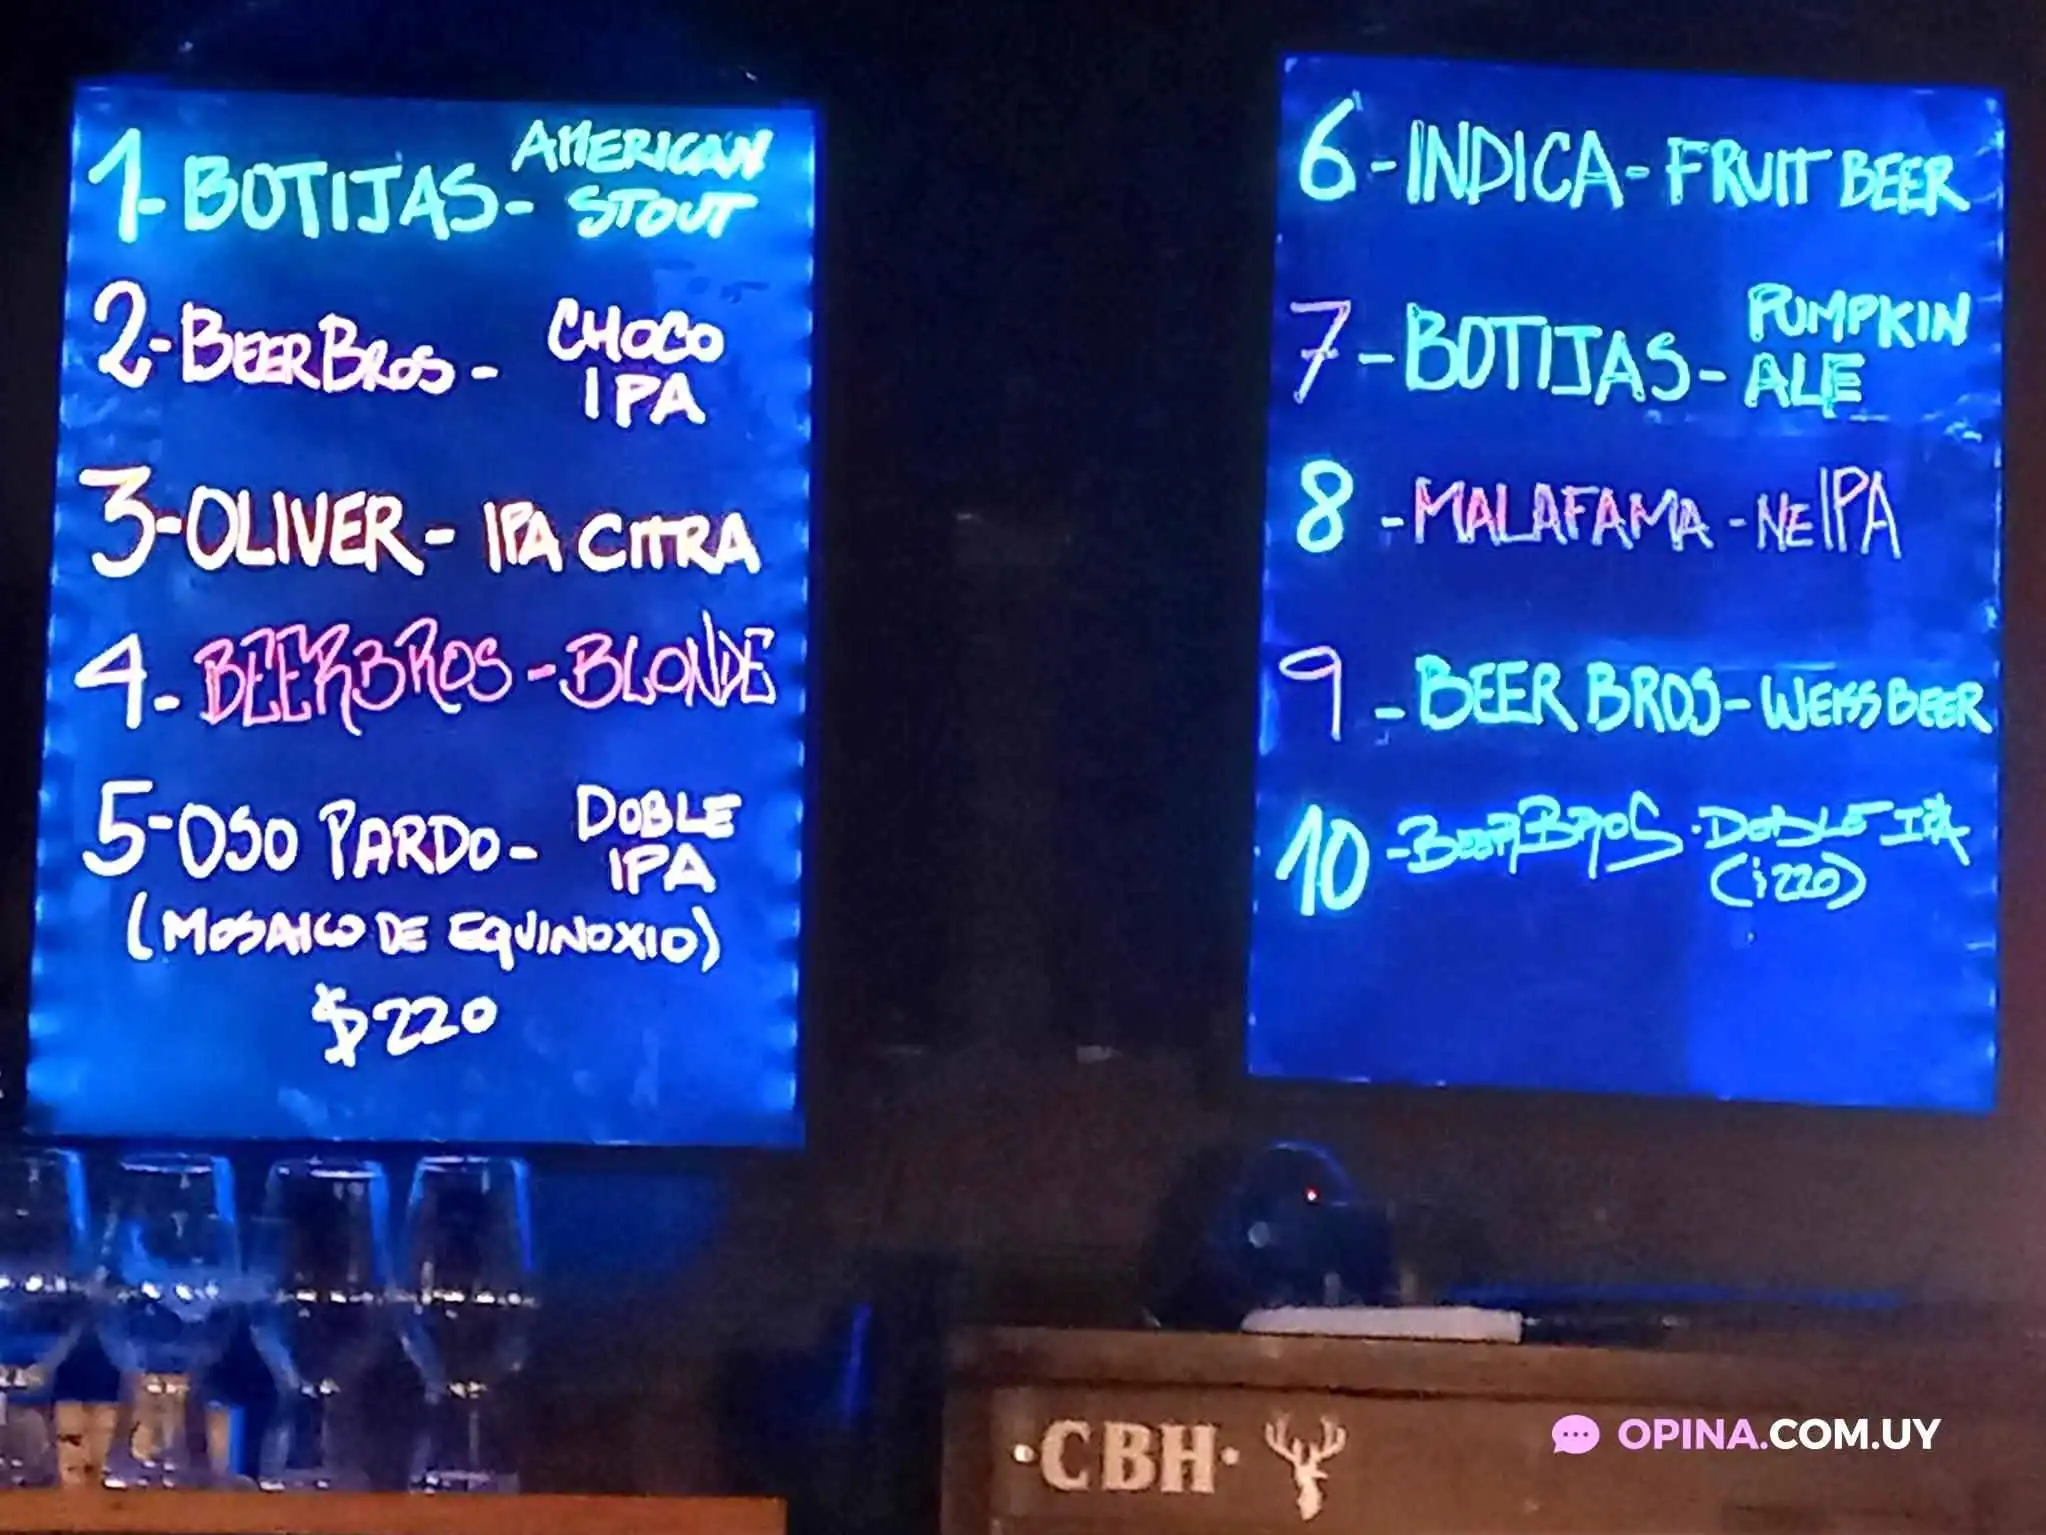 1-BOTIJAS- AMERICAN STOUT
2-BEERBROS- CHOCO IPA
3-OLIVER- IPA CITRA
4- BEERBROS-BLONDE
5-OSO PARDO- DOBLE IPA
(MOSAICO DE EQUINOXIO)
$220
6-INDICA-FRUIT BEER
7-BOTIJAS- PUMPKIN ALE
8-MALAFAMA-NEIPA
9-BEER BROS-WEISS BEER
10-BEERBROS·DOBLE IPA
(¡220)
·CBH·
OPINA.COM.UY